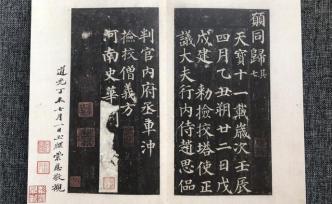 願同歸
七其
天寶十一載歲次壬辰
四月乙丑朔廿二日戊
戌建 勑檢校塔使正
議大夫行內侍趙思偘
判官內府丞車沖
檢校僧義方
河南史華刻
道光丁未七月一日玉牒崇恩敬觀